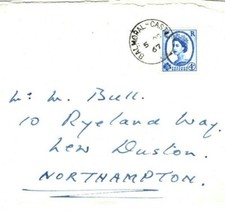 BALMORAL-CASTLE
5 OC
67
E R
W. W. Bull.
10 Ryeland Way.
New Duston.
NORTHAMPTON.